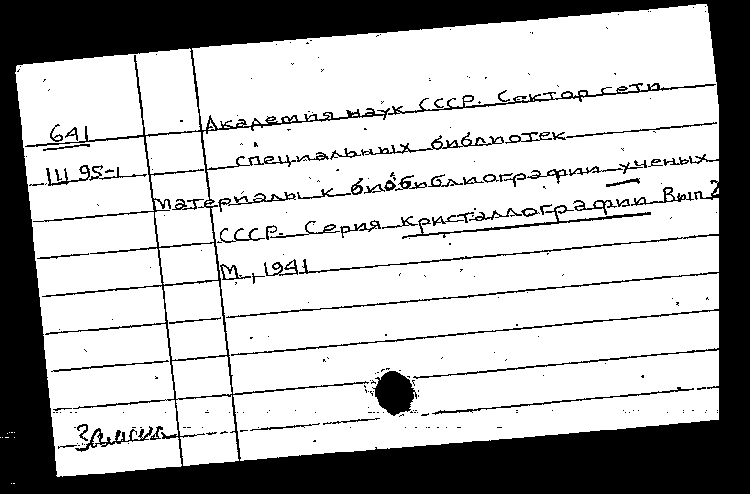 641
Ш 95-1
Академия наук СССР. Сектор сети
специальных библиотек
Материалы к биобиблиографии ученых
СССР. Серия кристаллографии Вып 2
М., 1941